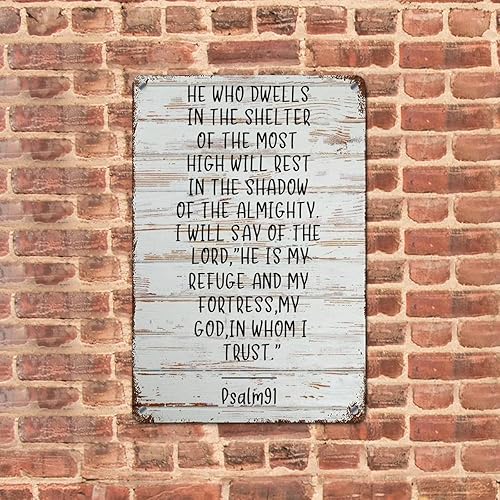 HE WHO DWELLS
IN THE SHELTER
OF THE MOST
HIGH WILL REST
IN THE SHADOW
OF THE ALMIGHTY.
I WILL SAY OF THE
LORD,"HE IS MY
REFUGE AND MY
FORTRESS,MY
GOD,IN WHOM I
TRUST."
Psalm91